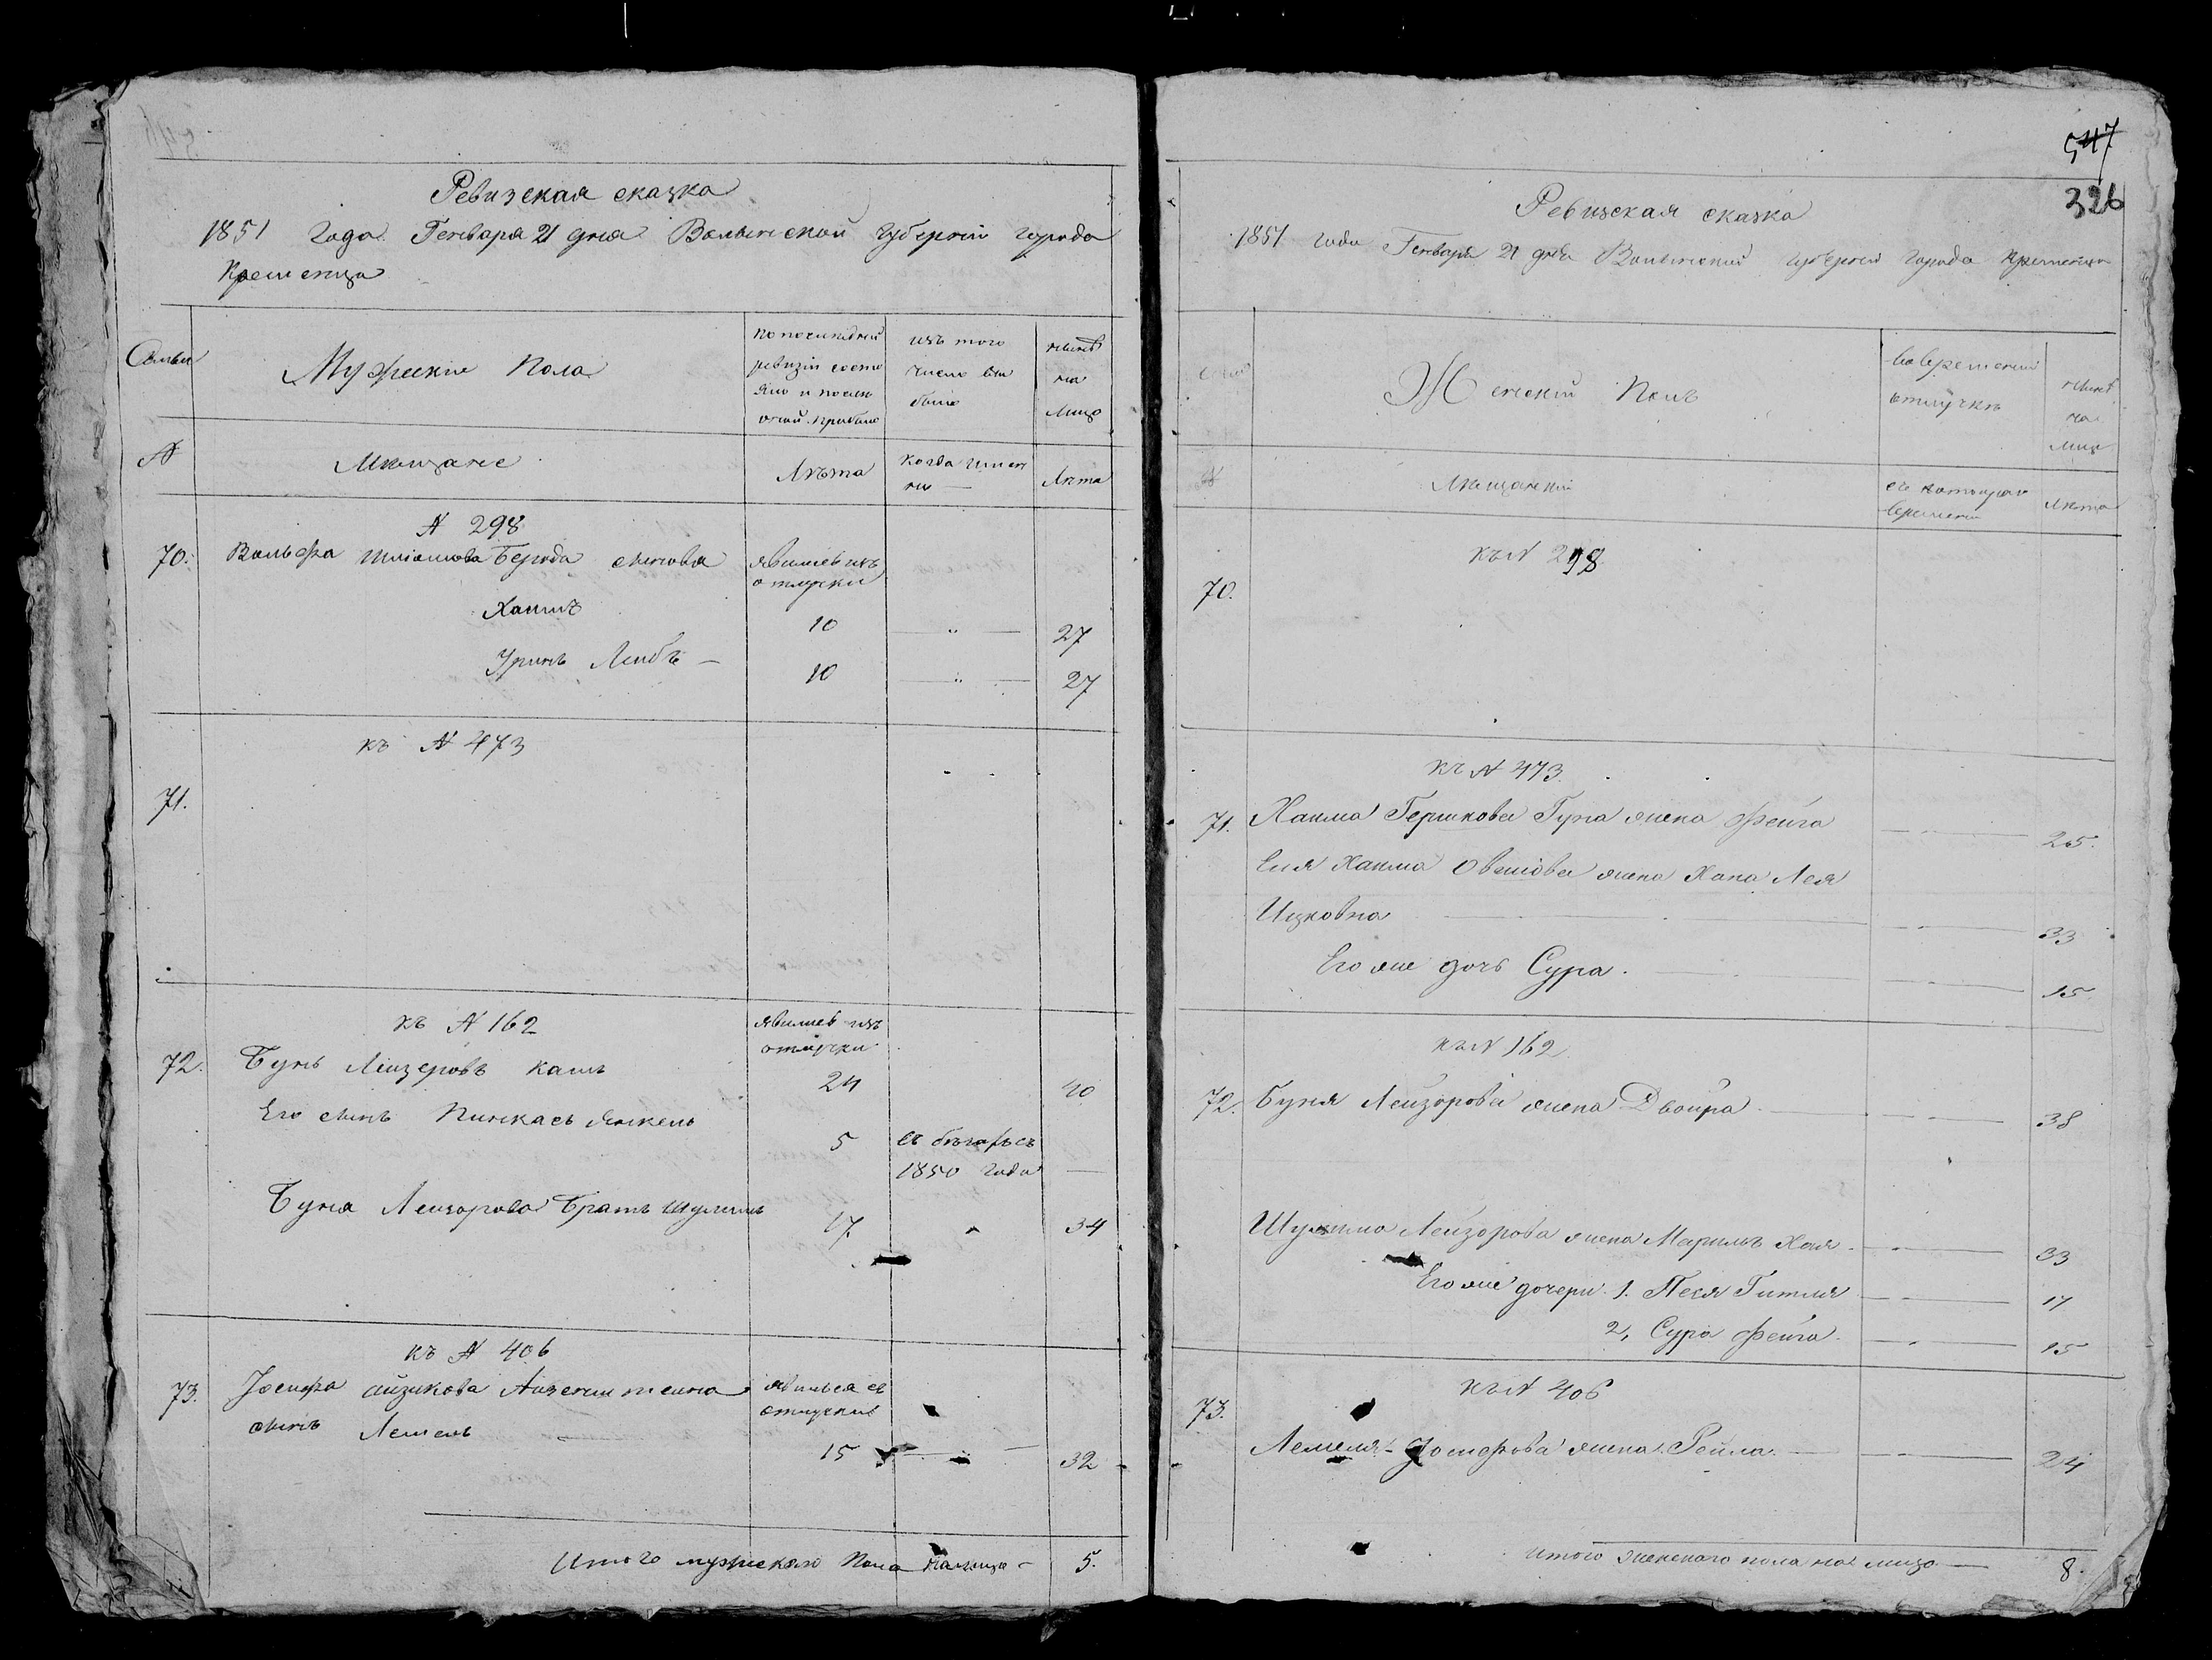 Ревизская сказка
1851 года Генваря 21 дня Волынской Губернии города
Кременца
Семьи
Мужеский Пола
по последней
ревизии состо
яло и после
оной прибыло
изъ того
число вы
было
ныне
на
лицо
№
Мещане
Лѣта
когда имен
но —
Лѣта
№ 298
70. Вольфа Шліомова Берода сыновья
явились изъ
отлучки
Хаимъ 10 — „ — 27
Уринъ Лейбъ — 10 — „ — 27
къ № 473
71.
къ № 162
явились изъ
отлучки
72. Бунь Лейзеровъ Кацъ 24 40
Его сынъ Пинкасъ Янкель 5 въ бѣгахъ съ
1850 года —
Буня Лейзорова Братъ Шулимъ 17. „ 34
къ № 406
73. Іосифа Айзикова Айзенштейна
явился съ
отлучки
сынъ Лемель 15 — „ — 32
Итого мужескаго Пола налицо — 5.
547
326
Ревизская сказка
1851 года Генваря 21 дня Волынской губерніи города Кременца
Семьи
Женскій Полъ
во временной
отлучкѣ
ныне
на
лицо
№
Мещанки
съ котораго
времени
Лѣта
къ № 298
70.
къ № 473.
71. Хаима Гершкова Гуна жена Фейга 25.
Еия Хаима Овшіова жена Хана Лея
Ицковна 33
Его же дочь Сура. 15
къ № 162
72. Буня Лейзорова жена Двойра 38
Шулима Лейзорова жена Маримъ Хая 33
Его же дочери. 1. Песя Гитля 17
2, Сура Фейга. 15
къ № 406
73.
Лемеля Іосифова жена Рейла. 24
Итого женскаго пола на лицо — 8.